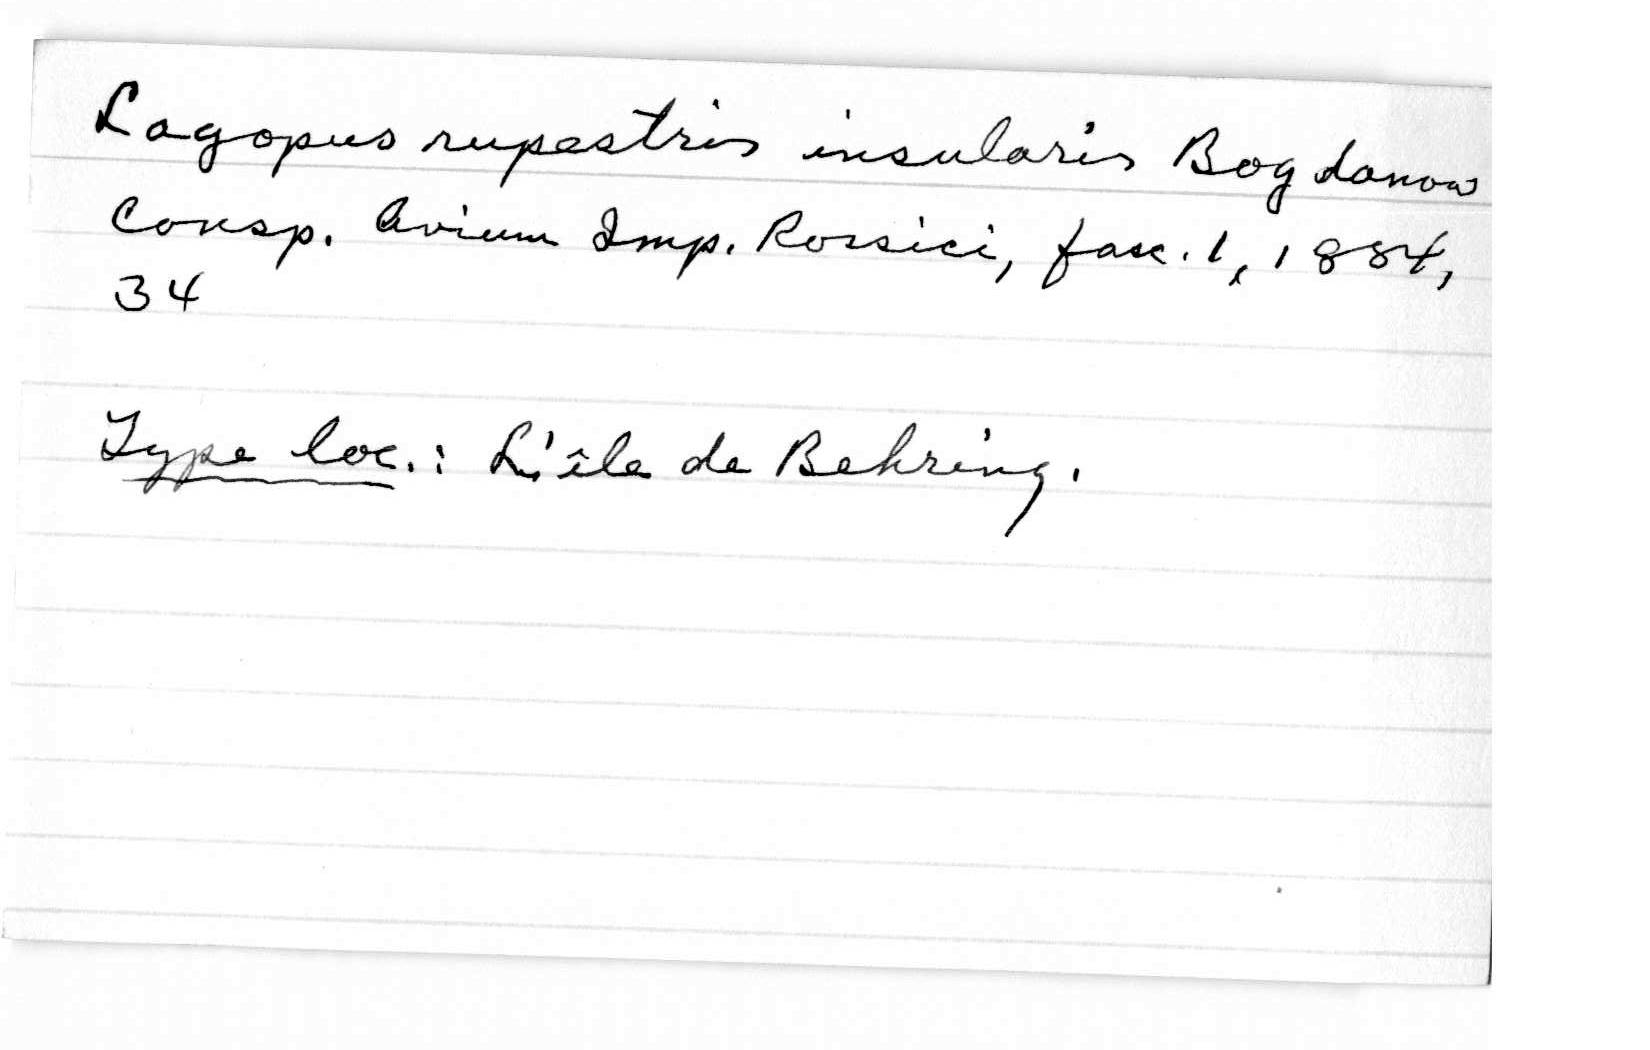 Lagopus rupestris insularis Bogdanow
Consp. Avium Imp. Rossici, fasc. 1, 1884,
34
Type loc.: L'île de Behring.